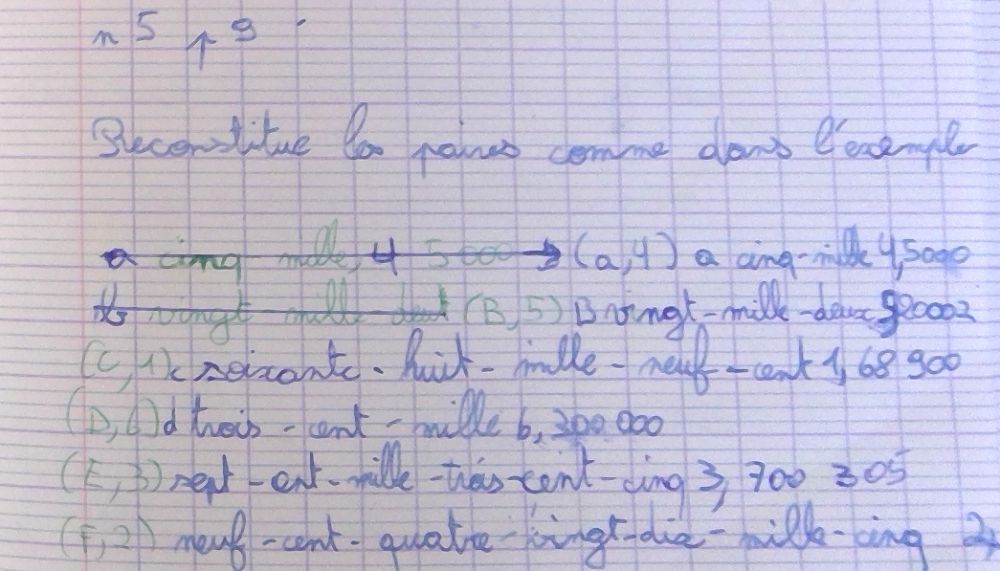 n 5 p 9
Reconstitue les paires comme dans l'exemple
a cinq mille, 4 5000 → (a,4) a cinq-mille 4,5000
b vingt mille deux (B,5) B vingt-mille-deux 5 20002
(C,1) c soixante-huit-mille-neuf-cent 1,68 900
(D,6) d trois-cent-mille 6, 300 000
(E,3) sept-cent-mille-trois-cent-cinq 3, 700 305
(F,2) neuf-cent-quatre-vingt-dix-mille-cinq 2,